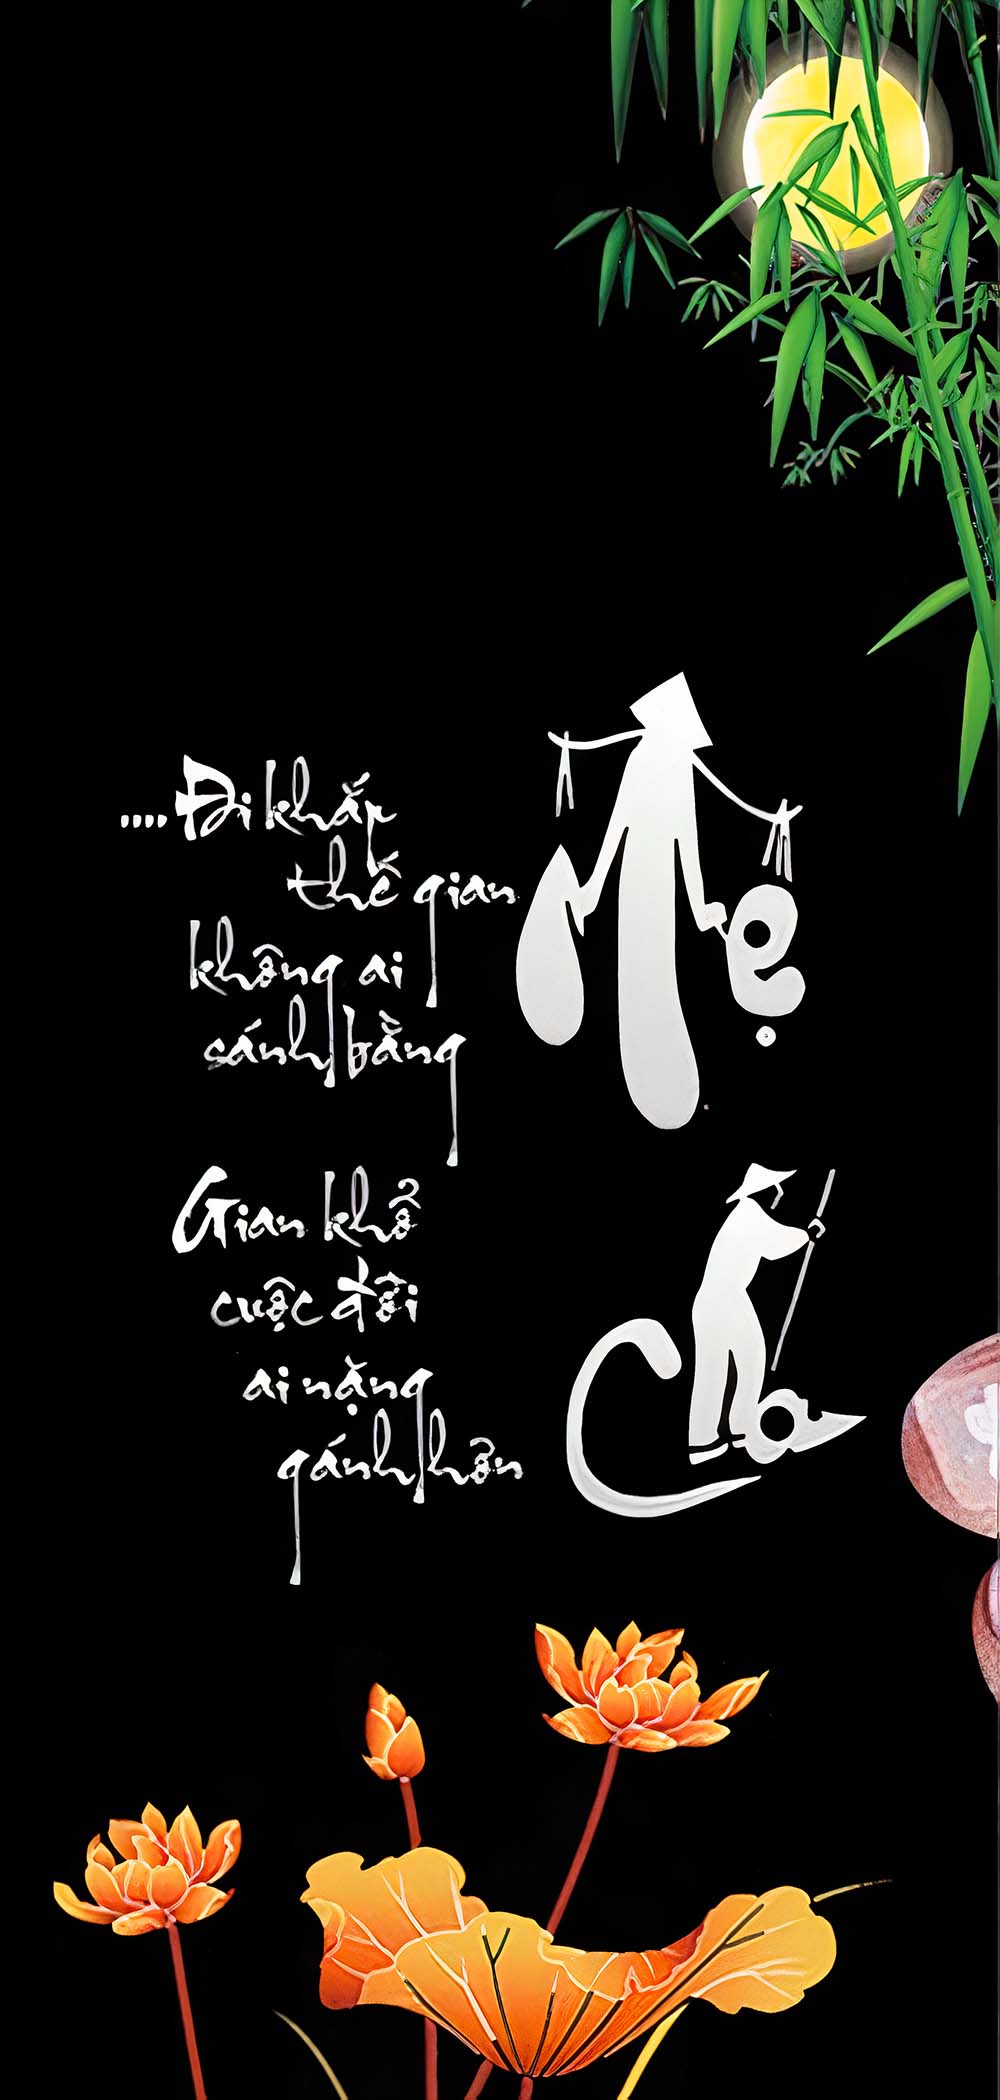 ....Đi khắp
thế gian
không ai
sánh bằng
Mẹ
Gian khổ
cuộc đời
ai nặng
gánh hơn
Cha